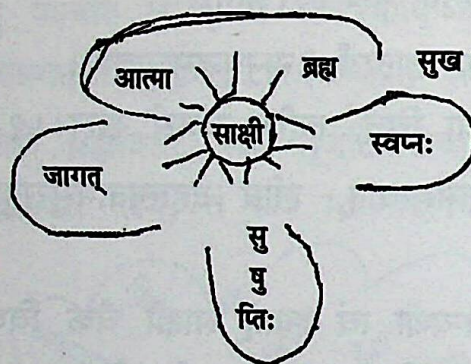 सुख
आत्मा ब्रह्म
साक्षी
स्वप्नः
जागत्
सु
षु
प्तिः